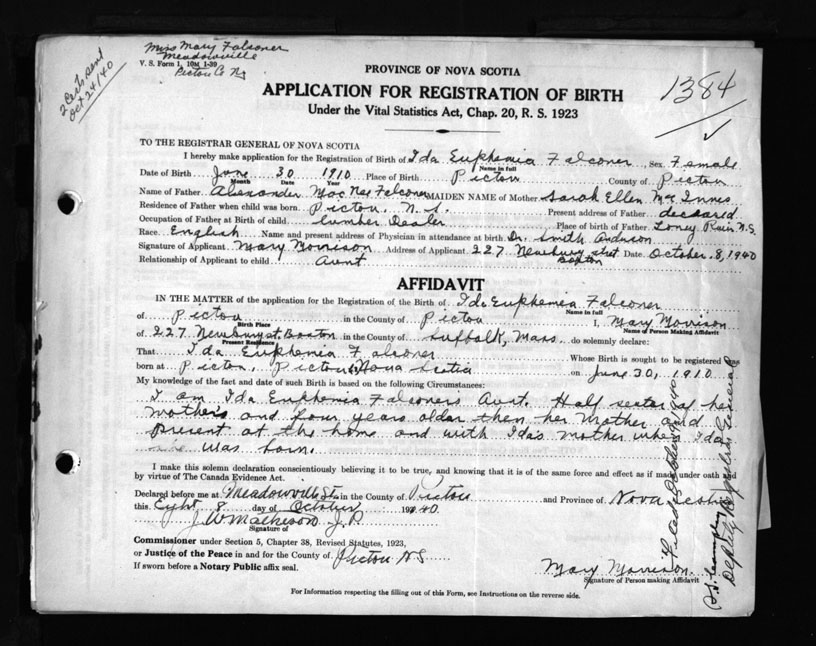 Miss Mary Falconer
Meadowville
V. S. Form 1, 10M 1-39
Pictou Co N.S.
2 Certs send
Oct 24/40
1384
PROVINCE OF NOVA SCOTIA
APPLICATION FOR REGISTRATION OF BIRTH
Under the Vital Statistics Act, Chap. 20, R. S. 1923
TO THE REGISTRAR GENERAL OF NOVA SCOTIA
I hereby make application for the Registration of Birth of Ida Euphemia Falconer, Sex Female
Name in full
Date of Birth June 30 1910 Place of Birth Pictou County of Pictou
Month Date Year
Name of Father Alexander MacNae Falconer MAIDEN NAME of Mother Sarah Ellen Mac Innes
Residence of Father when child was born Pictou, N. S. Present address of Father deceased
Occupation of Father at Birth of child lumber Dealer Place of birth of Father Toney River N.S.
Race English Name and present address of Physician in attendance at birth Dr. Smith Anderson
Signature of Applicant Mary Morrison Address of Applicant 227 Newbury street Boston Date October 8, 1940
Relationship of Applicant to child Aunt
AFFIDAVIT
IN THE MATTER of the application for the Registration of the Birth of Ida Euphemia Falconer
Name in full
of Pictou in the County of Pictou I, Mary Morrison
Birth Place Name of Person making Affidavit
of 227 Newbury st. Boston in the County of Suffolk, Mass. do solemnly declare:
Present Residence
That Ida Euphemia Falconer Whose Birth is sought to be registered was
born at Pictou, Pictou Co Nova Scotia on June 30, 1910
My knowledge of the fact and date of such Birth is based on the following Circumstances:
I am Ida Euphemia Falconer's Aunt. Half sester of her
Mother's and four years older then her Mother and
present at the home and with Ida's mother when Ida
was born.
I make this solemn declaration conscientiously believing it to be true, and knowing that it is of the same force and effect as if made under oath and
by virtue of The Canada Evidence Act.
Declared before me at Meadowville St. in the County of Pictou and Province of Nova Scotia
this Eight 8 day of October 1940
J W Matheson J.P.
Signature of
Commissioner under Section 5, Chapter 38, Revised Statutes, 1923,
or Justice of the Peace in and for the County of Pictou N S
If sworn before a Notary Public affix seal.
Mary Morrison
Signature of Person making Affidavit
For Information respecting the filling out of this Form, see Instructions on the reverse side.
Filed October
Deputy Registrar General